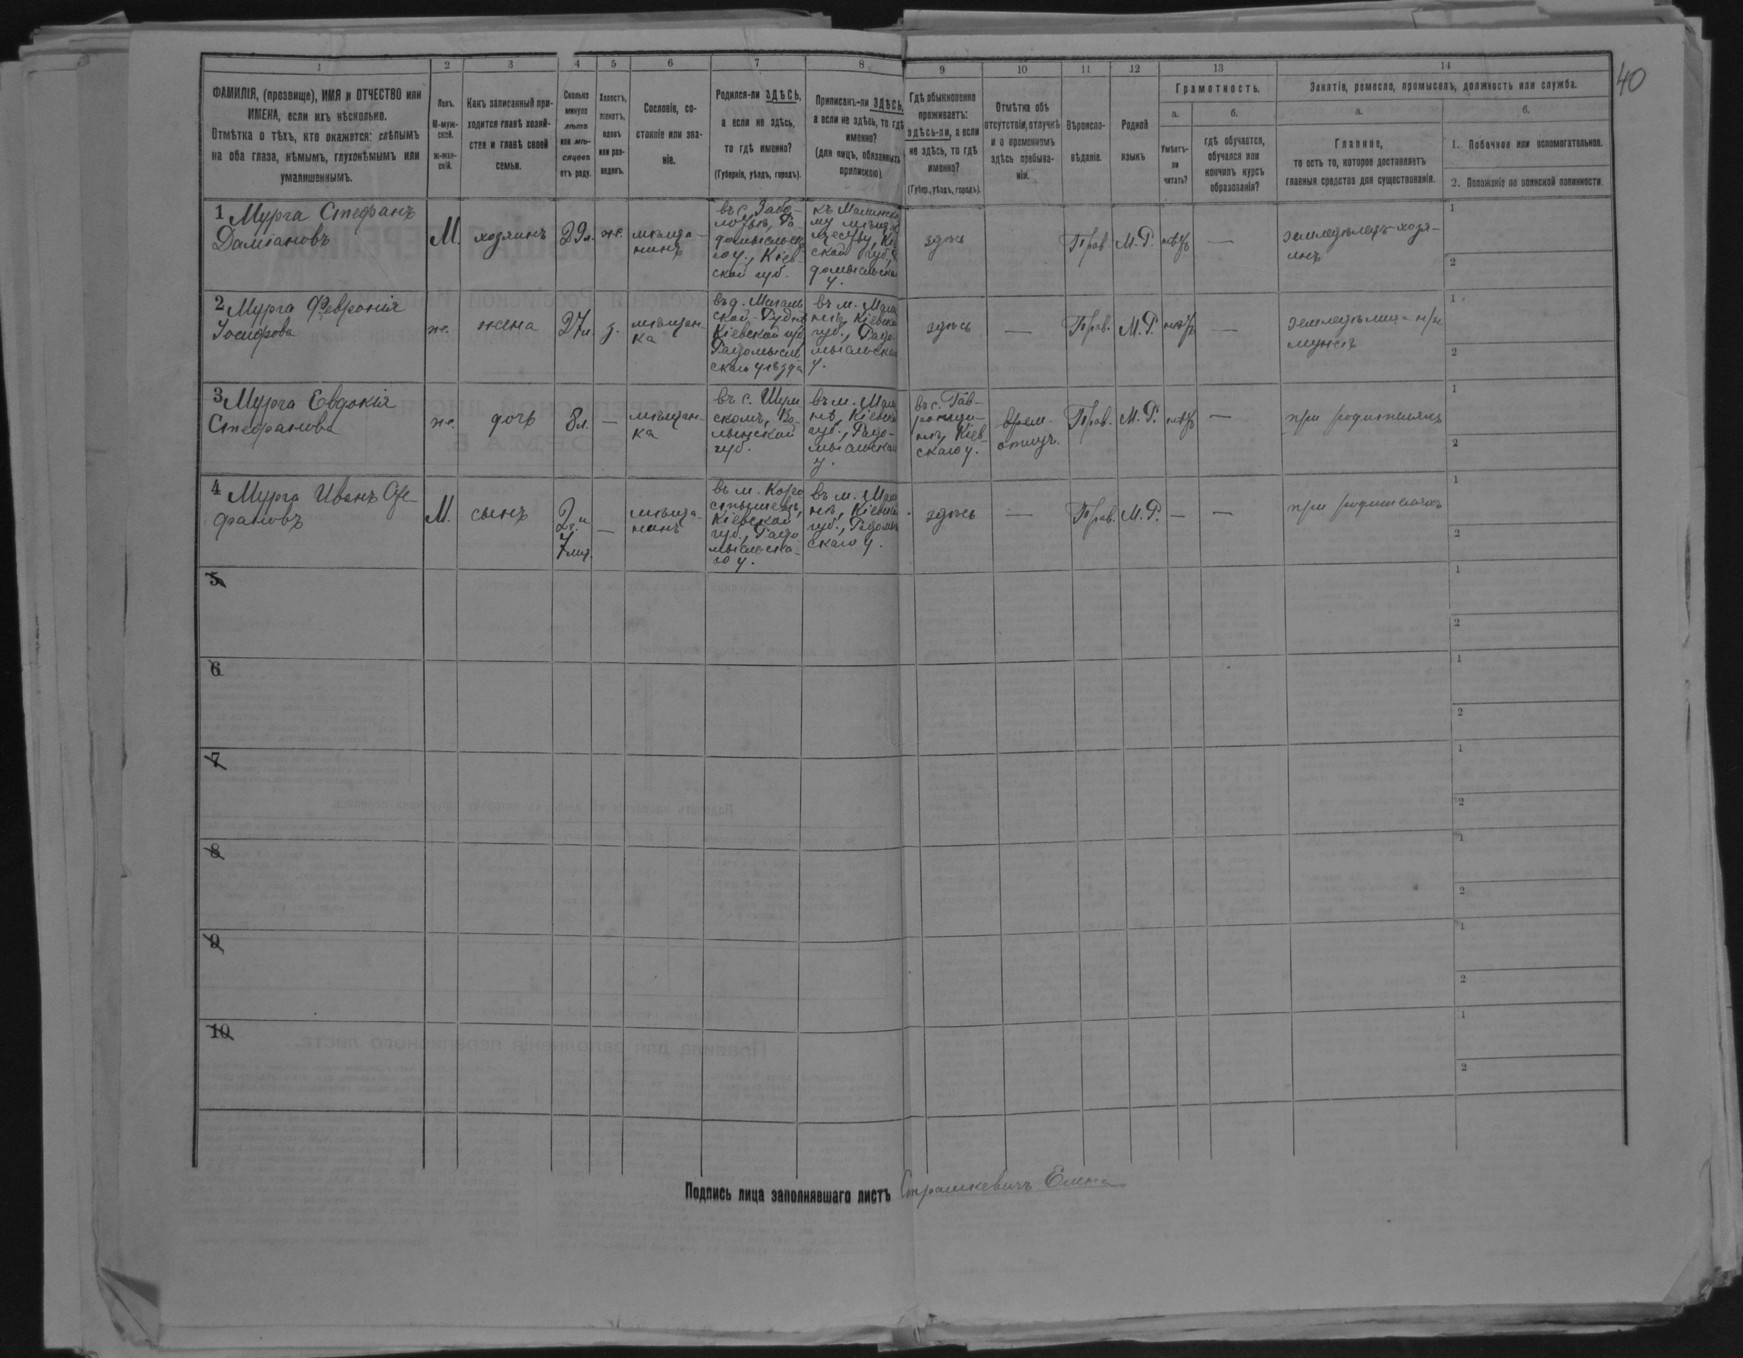 40
1
2
3
4
5
6
7
8
9
10
11
12
13
14
ФАМИЛІЯ, (прозвище), ИМЯ и ОТЧЕСТВО или
ИМЕНА, если ихъ нѣсколько.
Отмѣтка о тѣхъ, кто окажется: слѣпымъ
на оба глаза, нѣмымъ, глухонѣмымъ или
умалишеннымъ.
Полъ.
М-муж-
ской.
ж-жен-
скій.
Какъ записанный при-
ходится главѣ хозяй-
ства и главѣ своей
семьи.
Сколько
минуло
лѣтъ
или мѣ-
сяцевъ
отъ роду.
Холостъ,
женатъ,
вдовъ
или раз-
веденъ.
Сословіе, со-
стояніе или зва-
ніе.
Родился-ли ЗДѢСЬ,
а если не здѣсь,
то гдѣ именно?
(Губернія, уѣздъ, городъ).
Приписанъ-ли ЗДѢСЬ,
а если не здѣсь, то гдѣ
именно?
(для лицъ, обязанныхъ
припискою)
Гдѣ обыкновенно
проживаетъ:
здѣсь-ли, а если
не здѣсь, то гдѣ
именно?
(Губер., уѣздъ, городъ).
Отмѣтка объ
отсутствіи, отлучкѣ
и о временномъ
здѣсь пребыва-
ніи.
Вѣроиспо-
вѣданіе.
Родной
языкъ
Грамотность.
а.
Умѣетъ-
ли
читать?
б.
гдѣ обучается,
обучался или
кончилъ курсъ
образованія?
Занятіе, ремесло, промыселъ, должность или служба.
а.
Главное,
то есть то, которое доставляетъ
главныя средства для существованія.
б.
1. Побочное или вспомогательное.
2. Положеніе по воинской повинности.
1 Мурга Стефанъ
Даміановъ
М.
хозяинъ
29л.
ж.
мѣща-
нинъ
въ с. Забо-
лотьѣ, Ра
домысльска
го у., Кіев
ской губ.
къ Малинско
му мѣщ
ществу, Кі
ской губ.,
домысльска
у.
здѣсь
Прав.
М.Р.
нѣтъ
—
земледѣлецъ-хозя-
инъ
1
2
2 Мурга Феврокія
Іосифова
ж.
жена
27л.
з.
мѣщан-
ка
въ д.
Рудня
Кіевской губ.
Радомысль
скаго уѣзда
въ м. Мали
нѣ, Кіевско
губ., Радо-
мысльскаго
у.
здѣсь
—
Прав.
М.Р.
нѣтъ
—
земледѣлица при
мужѣ
1
2
3 Мурга Евдокія
Стефанова
ж.
дочь
8л.
—
мѣщан-
ка
въ с. Шум
скомъ, Во-
лынской
губ.
въ м. Мали
нѣ, Кіевско
губ., Радо-
мысльскаго
у.
въ с. Гав-
ронщи-
нѣ, Кіев-
скаго у.
врем.
отлуч.
Прав.
М.Р.
нѣтъ
—
при родителяхъ
1
2
4 Мурга Иванъ Сте-
фановъ
М.
сынъ
2г. и
7 мѣс.
—
мѣща-
нинъ
въ м. Коро
стышевѣ,
Кіевской
губ., Радо
мысльска-
го у.
въ м. Мали
нѣ, Кіевско
губ., Радомы
скаго у.
здѣсь
—
Прав.
М.Р.
—
—
при родителяхъ
1
2
5
1
2
6
1
2
7
1
2
8
1
2
9
1
2
10
1
2
Подпись лица заполнявшаго листъ Страшкевичъ Елена